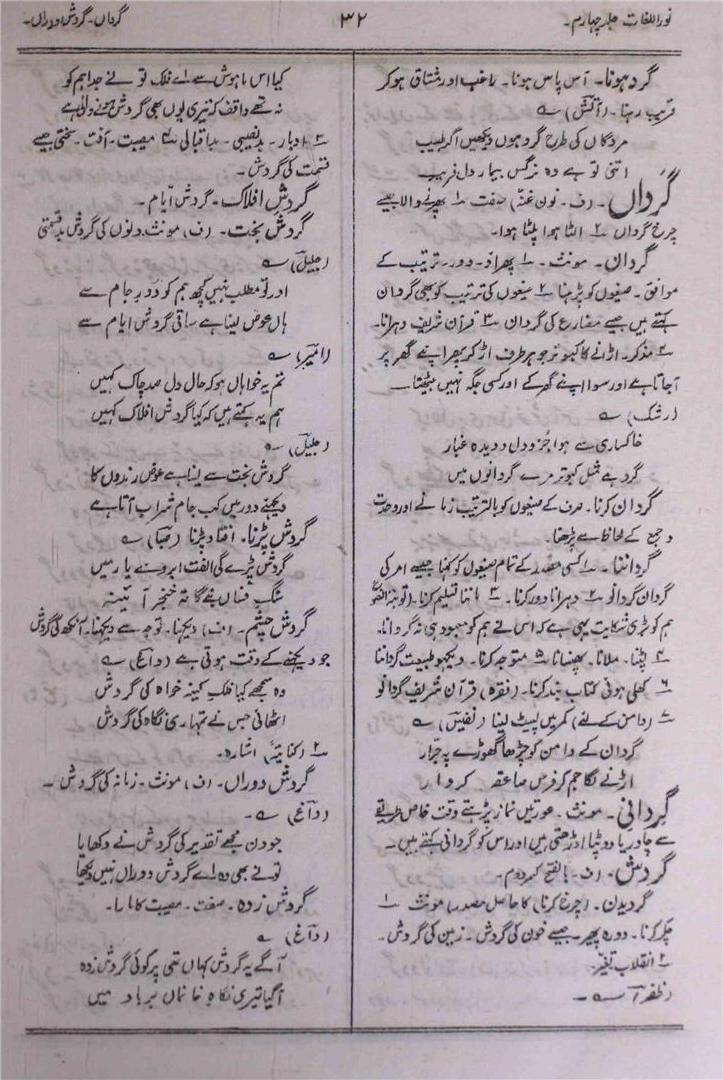 نوراللغات جلد چہارم۔
۳۲
گرداں۔ گردش دوراں۔
گرد ہونا۔ آس پاس ہونا۔ راغب اور مشتاق ہوکر
قریب رہنا۔ (آتش) ؎
مردگاں کی طرح گرد ہوں دیکھیں اگر طبیب
اتنی تو ہے وہ نرگس بیمار دل فریب
گرداں۔ (ف۔ نون غنہ) صفت ۱ پھرنے والا جیسے
چرخ گرداں ۲ الٹا ہوا پلٹا ہوا۔
گردان۔ مونث۔ ۱ پھراؤ۔ دور۔ ترتیب کے
موافق۔ صیغوں کو پڑھنا ۲ صیغوں کی ترتیب کو بھی گردان
کہتے ہیں جیسے مضارع کی گردان ۳ قرآن شریف دہرانا۔
۴ مذکر۔ اڑانے کا کبوتر جو ہر طرف اڑ کر پھر اپنے گھر پر
آجاتا ہے اور سوا اپنے گھر کے اور کسی جگہ نہیں بیٹھتا۔
(رشک) ؎
خاکساری سے ہوا جُز و دل و دیدہ غبار
گرد ہے مثل کبوتر مرے گردانوں میں
گردان کرنا۔ صرف کے صیغوں کو بالترتیب زمانے اور وحدت
و جمع کے لحاظ سے پڑھنا۔
گرداننا۔ ۱ کسی مصدر کے تمام صیغوں کو کہنا جیسے امر کی
گردان گردانو ۲ دہرانا دور کرنا۔ ۳ ماننا تسلیم کرنا۔ (توبۃ النصوح)
ہم کو بڑی شکایت یہی ہے کہ اس نے ہم کو معبود ہی نہ گردانا۔
۴ پٹنا۔ ملانا۔ پھنسانا ۵ متوجہ کرنا۔ دیکھو طبیعت گرداننا
۶ کھلی ہوئی کتاب بند کرنا۔ (فقرہ) قرآن شریف گردانو
۷ (دامن کے لئے) کمر میں لپیٹ لینا (نفیس) ؎
گردان کے دامن کو چڑھا گھوڑے پہ جرّار
اڑنے لگا جم کو فرس صاعقہ کردار
گردانی۔ مونث۔ عورتیں نماز پڑھتے وقت خاص طریقے
سے چادر یا دوپٹا اوڑھتی ہیں اور اس کو گردانی کہتے ہیں۔
گردش۔ (ف۔ بالفتح کسر دوم۔
گردیدن۔ (چرخ کرنا) کا حاصل مصدر) مونث ۱
چکر کرنا۔ دورہ پھیر۔ جیسے خون کی گردش۔ زمین کی گردش۔
۲ انقلاب تغیّر
(ظفر) ؎
کیا اس ماہوش سے اے فلک تو نے جدا ہم کو
نہ تھے واقف کہ تیری یوں بھی گردش ہونے والی ہے
۳ ادبار۔ بدنصیبی۔ بداقبالی ۴ مصیبت۔ آفت۔ سختی جیسے
قسمت کی گردش۔
گردشِ افلاک۔ گردش ایّام۔
گردش بخت۔ (ف) مونث۔ دنوں کی گردش بدقسمتی
(جلیل) ؎
اور تو مطلب نہیں کچھ ہم کو دَورِ جام سے
ہاں عوض لینا ہے ساقی گردش ایام سے
(امیر) ؎
تم یہ خواہاں ہو کہ حال دل صد چاک کہیں
ہم یہ کہتے ہیں کہ کیا گردش افلاک کہیں
(جلیل) ؎
گردش بخت سے لینا ہے عوض رندوں کا
دیکھئے دور میں کب جام شراب آتا ہے
گردش پڑنا۔ افتاد پڑنا (صبا) ؎
گردش پڑے گی الفت ابروئے یار میں
سنگِ فساں بنے گا تہِ خنجر آئینہ
گردش چشم۔ (ف) دیکھنا۔ توجہ سے دیکھنا۔ آنکھ کی گردش
جو دیکھنے کے وقت ہوتی ہے (داغ) ؎
وہ سمجھے کیا فلک کینہ خواہ کی گردش
اٹھائی جس نے تمہاری نگاہ کی گردش
۲ (کنایتہً) اشارہ۔
گردش دوراں۔ (ف) مونث۔ زمانہ کی گردش۔
(داغ) ؎
جو دن مجھے تقدیر کی گردش نے دکھایا
تونے بھی وہ اے گردش دوراں نہیں دیکھا
گردش زدہ۔ صفت۔ مصیبت کا مارا۔
(داغ) ؎
آگے یہ گردش کہاں تھی پر کوئی گردش زدہ
آگیا تیری نگاہِ خانماں برباد میں